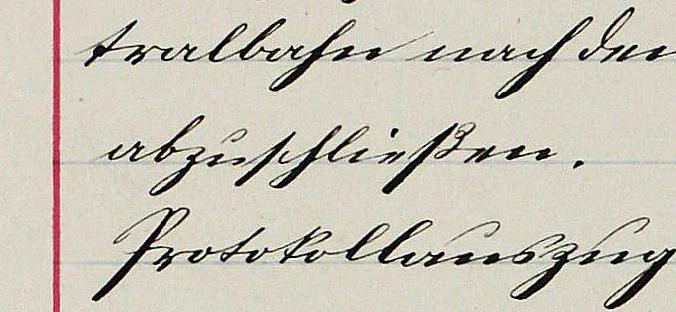 tralbahn nach den
abzuschließen.
Protokollauszug